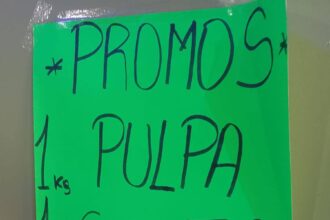 *PROMOS*
1 Kg PULPA
1